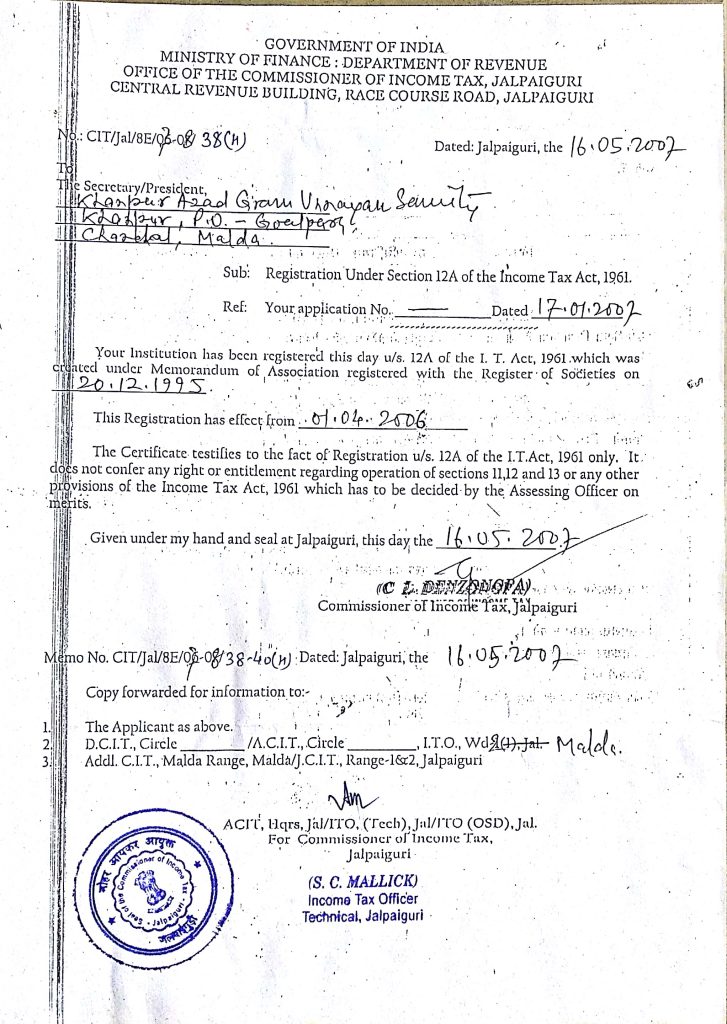 GOVERNMENT OF INDIA
MINISTRY OF FINANCE : DEPARTMENT OF REVENUE
OFFICE OF THE COMMISSIONER OF INCOME TAX, JALPAIGURI
CENTRAL REVENUE BUILDING, RACE COURSE ROAD, JALPAIGURI
No.: CIT/Jal/8E/07-08/38(H) Dated: Jalpaiguri, the 16.05.2007
To
The Secretary/President,
Khanpur Azad Gram Unnayan Samity
Khanpur, P.O. -
Chanchal, Malda.
Sub: Registration Under Section 12A of the Income Tax Act, 1961.
Ref: Your application No. — Dated 17.01.2007
Your Institution has been registered this day u/s. 12A of the I. T. Act, 1961 which was
created under Memorandum of Association registered with the Register of Societies on
20.12.1995.
This Registration has effect from 01.04.2006
The Certificate testifies to the fact of Registration u/s. 12A of the I.T.Act, 1961 only. It
does not confer any right or entitlement regarding operation of sections 11,12 and 13 or any other
provisions of the Income Tax Act, 1961 which has to be decided by the Assessing Officer on
merits.
Given under my hand and seal at Jalpaiguri, this day the 16.05.2007
(C L DENZONGPA)
Commissioner of Income Tax, Jalpaiguri
Memo No. CIT/Jal/8E/07-08/38-40(H) Dated: Jalpaiguri, the 16.05.2007
Copy forwarded for information to:-
1. The Applicant as above.
2. D.C.I.T., Circle ________ /A.C.I.T., Circle ________, I.T.O., Wd Jal. Malda.
3. Addl. C.I.T., Malda Range, Malda/J.C.I.T., Range-1&2, Jalpaiguri
ACIT, Hqrs, Jal/ITO, (Tech), Jal/ITO (OSD), Jal.
For Commissioner of Income Tax,
Jalpaiguri
(S. C. MALLICK)
Income Tax Officer
Technical, Jalpaiguri
मोहर आयकर आयुक्त
Seal of the Commissioner of Income Tax
Jalpaiguri
जलपाईगुड़ी